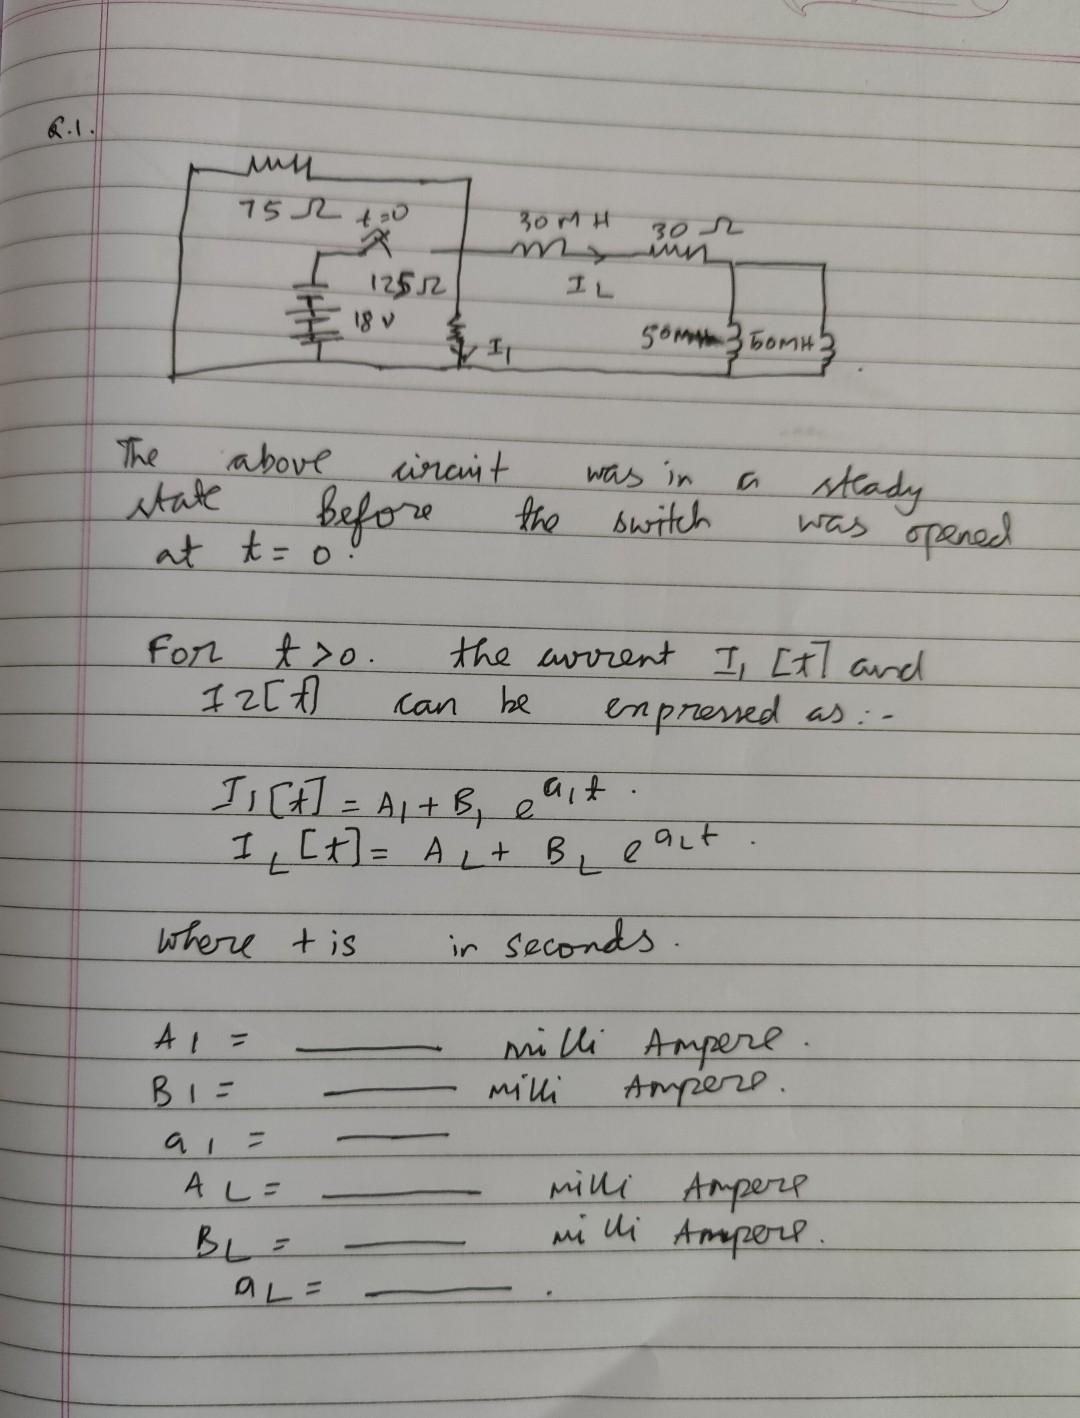 Q.1.
75 Ω
t=0
30 MH
30 Ω
125 Ω
IL
18 v
I1
50MH
60MH
The above circuit was in a steady
state Before the switch was opened
at t = 0.
For t >0. the current I1 [t] and
I2[t] can be expressed as :-
I1[t] = A1 + B1 e^a1t .
IL [t] = AL + BL e^aLt .
Where t is in seconds.
A1 = ____ milli Ampere.
B1 = ____ milli Ampere.
a1 = ____
AL = ____ milli Ampere
BL = ____ milli Ampere.
aL = ____ .